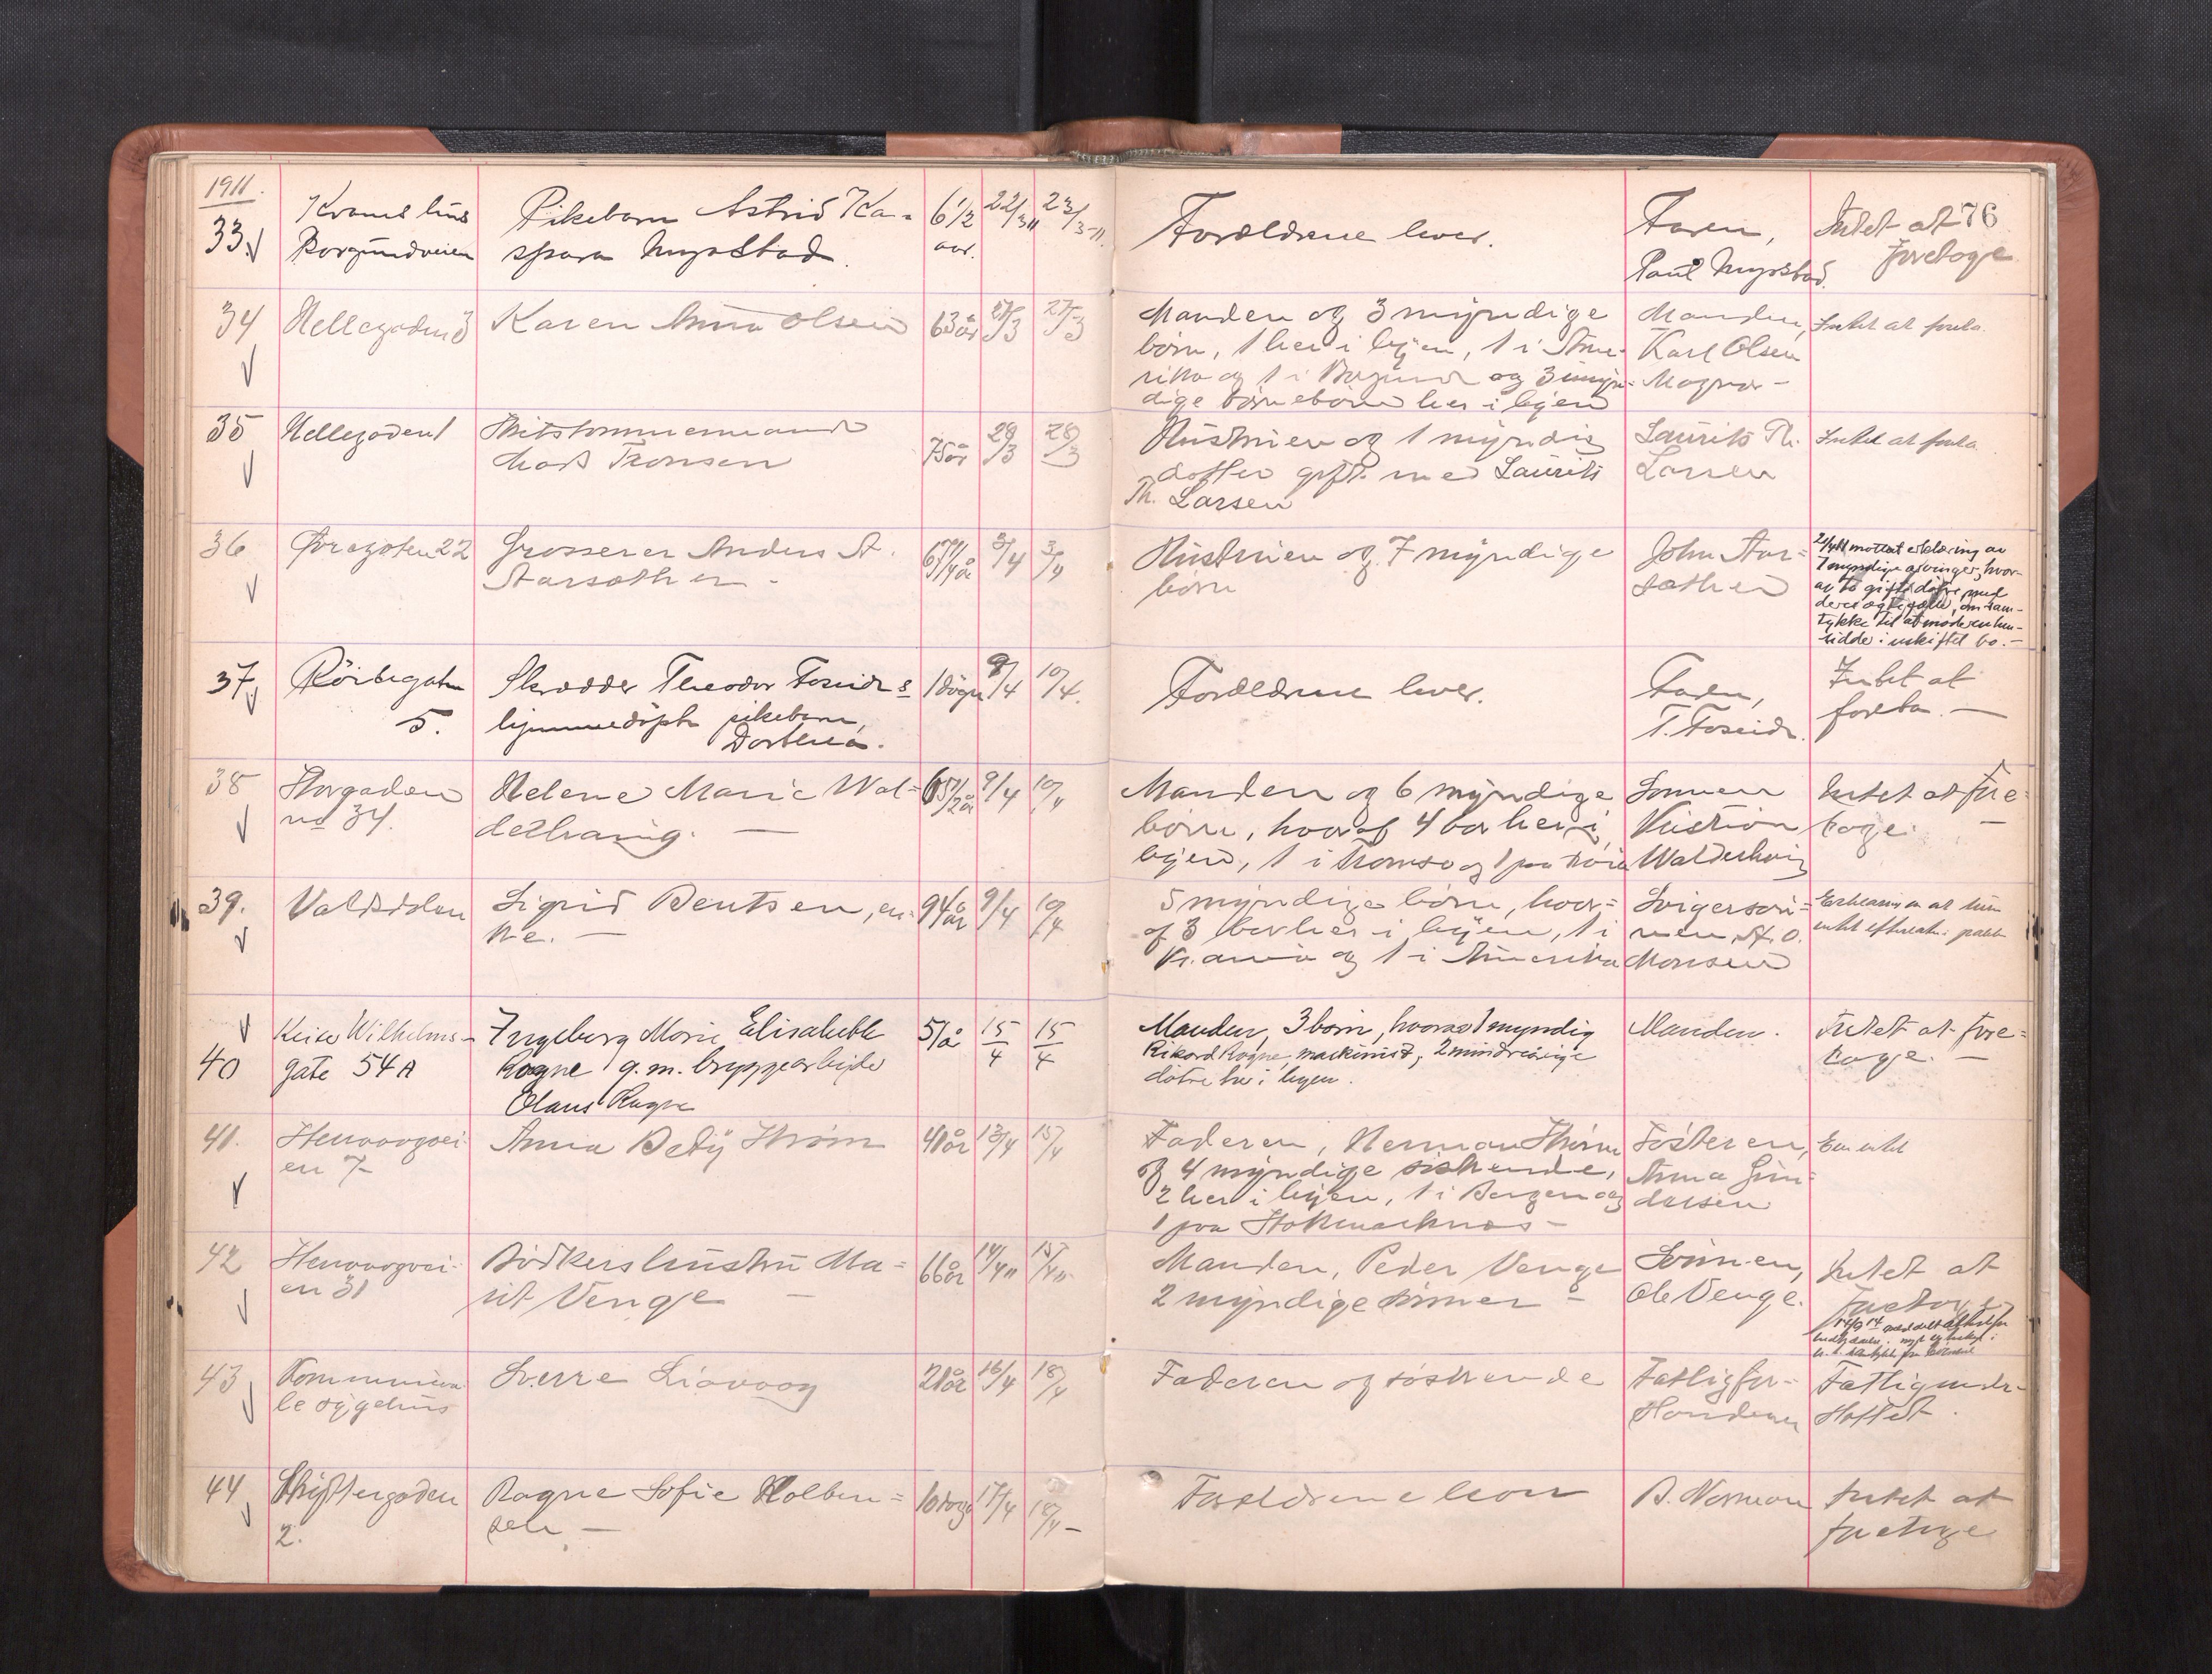 1911.
76
33.
Kvams hus
Borgundveien
Pikebarn Astrid Ka-
spara Myrstad.
6 1/2
aar.
22/3 11
23/3-11.
Forældrene lever.
Faren,
Paul Myrstad.
Intet at
foretage
34
Hellegaden 3
Karen Anna Olsen
63 år
27/3
Manden og 3 myndige
børn, 1 her i byen, 1 i Ame-
rika og 1 i Borgund og 3 umyn-
dige børnebørn her i byen
Manden,
Karl Olsen
Intet at foreta.
35
Hellegaden 1
Mads Tronsen
75 år
28/3
Hustruen og 1 myndig
datter gift med Laurits
Th. Larsen
Laurits Th.
Larsen
Intet at foreta.
36
Øvregaten 22
Grosserer Anders A.
Aarsæther
3/4
3/4
Hustruen og 7 myndige
børn
John Aar-
sæther
mottat erklæring av
7 myndige arvinger, hvor-
av to gifte døtre med
deres egtefæller, om sam-
tykke til at moderen hen-
sidder i uskiftet bo.-
37.
Röisegaten
5.
Skrædder Theodor Foseids
hjemmedöpte pikebarn,
Dorthea.
1 døgn
8/4
10/4.
Forældrene lever.
Faren,
T. Foseid.
Intet at
foreta. —
38
Storgaden
no 34.
Helene Marie Wal-
derhaug. —
9/4
10/4
Manden og 6 myndige
børn, hvoraf 4 bor her i
byen, 1 i Tromsø og 1 paa
Sønnen
Kristian
Walderhaug
Intet at fore-
tage. —
39.
Volsdalen
Sigrid Bentsen, en-
ke. —
94 år
9/4
10/4
5 myndige børn, hvor-
af 3 bor her i byen, 1 i
Kr.ania og 1 i Amerika
Svigersøn-
nen, A. O.
Monsen
Erklæring om at hun
intet efterlat
40
Keiser Wilhelms-
gate 54 A
Ingeborg Marie Elisabeth
Rogne g.m. bryggearbeider
Olaus Rogne
51 år
15/4
15/4
Manden, 3 børn, hvorav 1 myndig
Rikard Rogne, maskinist, 2 mindreårige
døtre her i byen.
Manden.
Intet at fore-
tage. —
41.
Stenvaagvei-
en 7-
Anna Bety Strøm
41 år
13/4
15/4
Faderen, Herman Strøm
og 4 myndige søskende,
2 her i byen, 1 i Bergen og
1 paa Stokmarknes -
Søsteren,
Anna Gun-
dersen
Eier intet
42
Stenvaagvei-
en 31
Bødkers hustru Ma-
rit Venge —
66 år
14/4 11
15/4 11
Manden, Peder Venge
2 myndige sønner -
Sønnen,
Ole Venge.
Intet at
foretage
43
Kommuna-
le sygehus
Sverre Liavaag
21 år
16/4
18/4
Faderen og søskende
Fattigfor-
standeren
Fattigunder-
støttet.
44
Skyttergaden
2.
Ragna Sofie Kolben-
17/4
18/4 -
Forældrene lever
B. Norman
Intet at
foretage